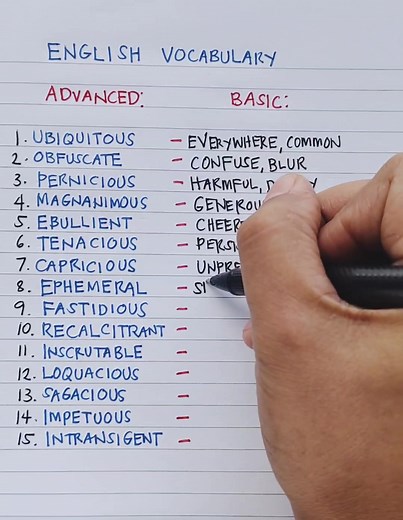 ENGLISH VOCABULARY
ADVANCED: BASIC:
1. UBIQUITOUS - EVERYWHERE, COMMON
2. OBFUSCATE - CONFUSE, BLUR
3. PERNICIOUS - HARMFUL,
4. MAGNANIMOUS -
5. EBULLIENT -
6. TENACIOUS -
7. CAPRICIOUS -
8. EPHEMERAL -
9. FASTIDIOUS -
10. RECALCITRANT -
11. INSCRUTABLE -
12. LOQUACIOUS -
13. SAGACIOUS -
14. IMPETUOUS -
15. INTRANSIGENT -